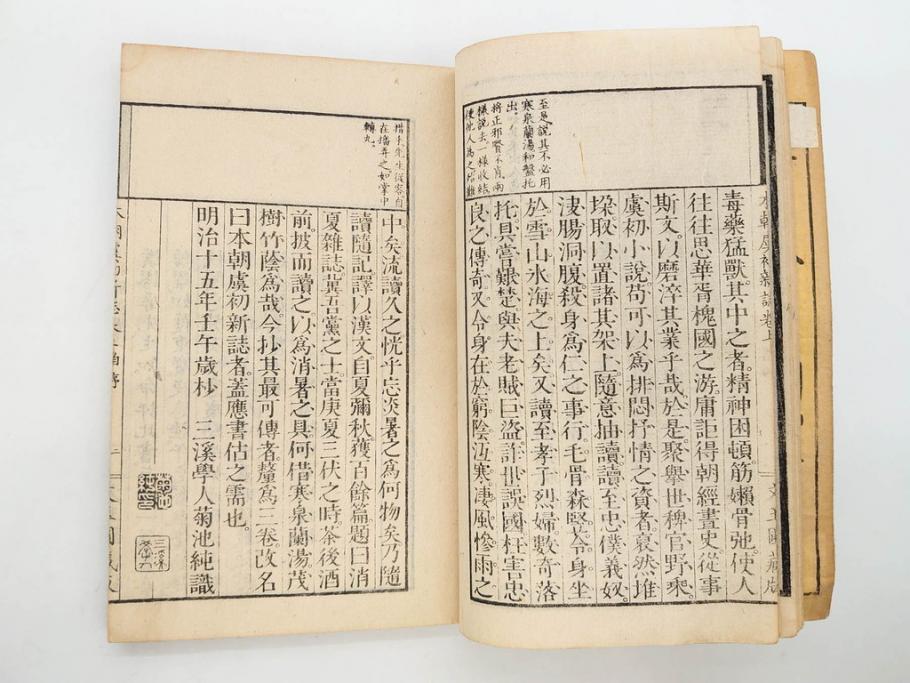 本朝虞初新誌卷上
至是說其不必用
寒泉蘭湯和盤托
出。
將正邪賢不肖兩
樣說去一樣收結
使他人爲之恐難
毒藥猛獸。其中之者。精神困頓筋嬾骨弛。使人
往往思華胥槐國之游。庸詎得朝經晝史。從事
斯文。以磨淬其業乎哉。於是聚舉世稗官野乘
虞初小說。苟可以爲排悶抒情之資者。裒然堆
垛。取以置諸其架上。隨意抽讀。讀至忠僕義奴。
腸洞腹。殺身爲仁之事行。毛骨森竪。令身坐
於雪山水海之上矣。又讀至孝子烈婦數奇落
托。具嘗艱楚。與夫老賊巨盜。詐世誤國。枉害忠
良之傳奇。又令身在於窮陰冱寒。凄風慘雨之
先生從容自
在播弄之如掌中
轉丸。
中矣。流讀久之。恍乎忘炎暑之爲何物矣。乃隨
讀隨記。譯以漢文。自夏彌秋。獲百餘篇。題曰消
夏雜誌。冀吾黨之士。當庚夏三伏之時。茶後酒
前。披而讀之。以爲消暑之具。何借寒泉蘭湯茂
樹竹蔭爲哉。今抄其最可傳者。釐爲三卷。改名
曰本朝虞初新誌者。蓋應書估之需也。
明治十五年壬午歲杪 三溪學人菊池純識